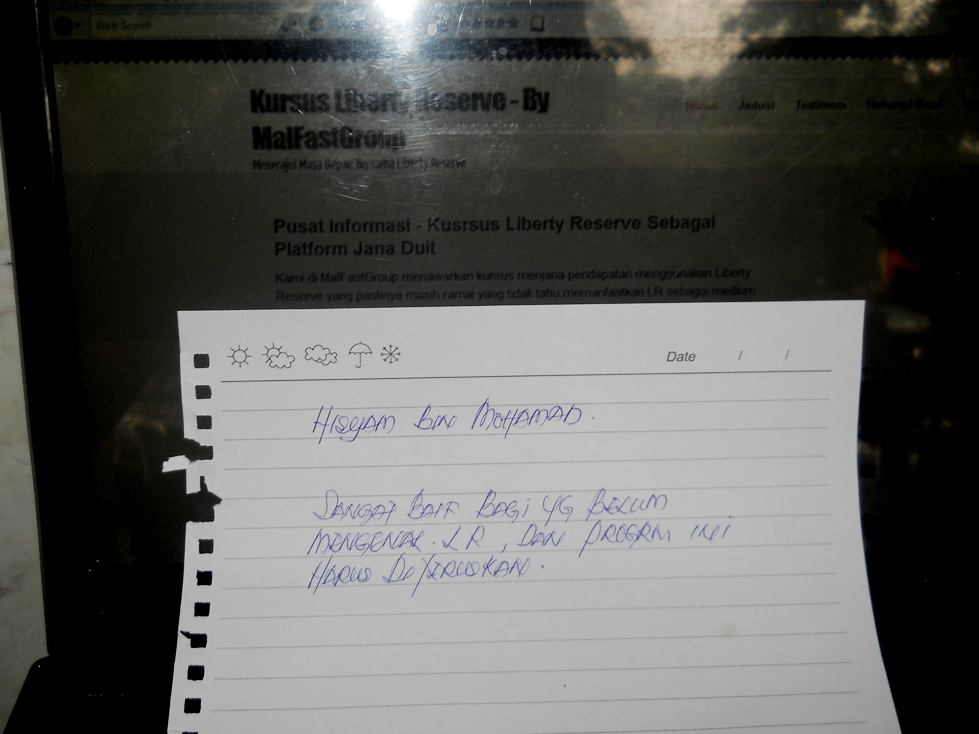 Web Search
Kursus Liberty Reserve - By
MalFastGroup
Menerajui Masa Depan Bersama Liberty Reserve
Home Jadual Testimoni Hubungi Kami
Pusat Informasi - Kusrsus Liberty Reserve Sebagai
Platform Jana Duit
Kami di MalFastGroup menawarkan kursus menjana pendapatan menggunakan Liberty
Reserve yang pastinya masih ramai yang tidak tahu memanfaatkan LR sebagai medium
Date / /
HISYAM BIN MOHAMAD.
SANGAT BAIK BAGI YG BELUM
MENGENAL LR, DAN PROGRM INI
HARUS DITERUSKAN.